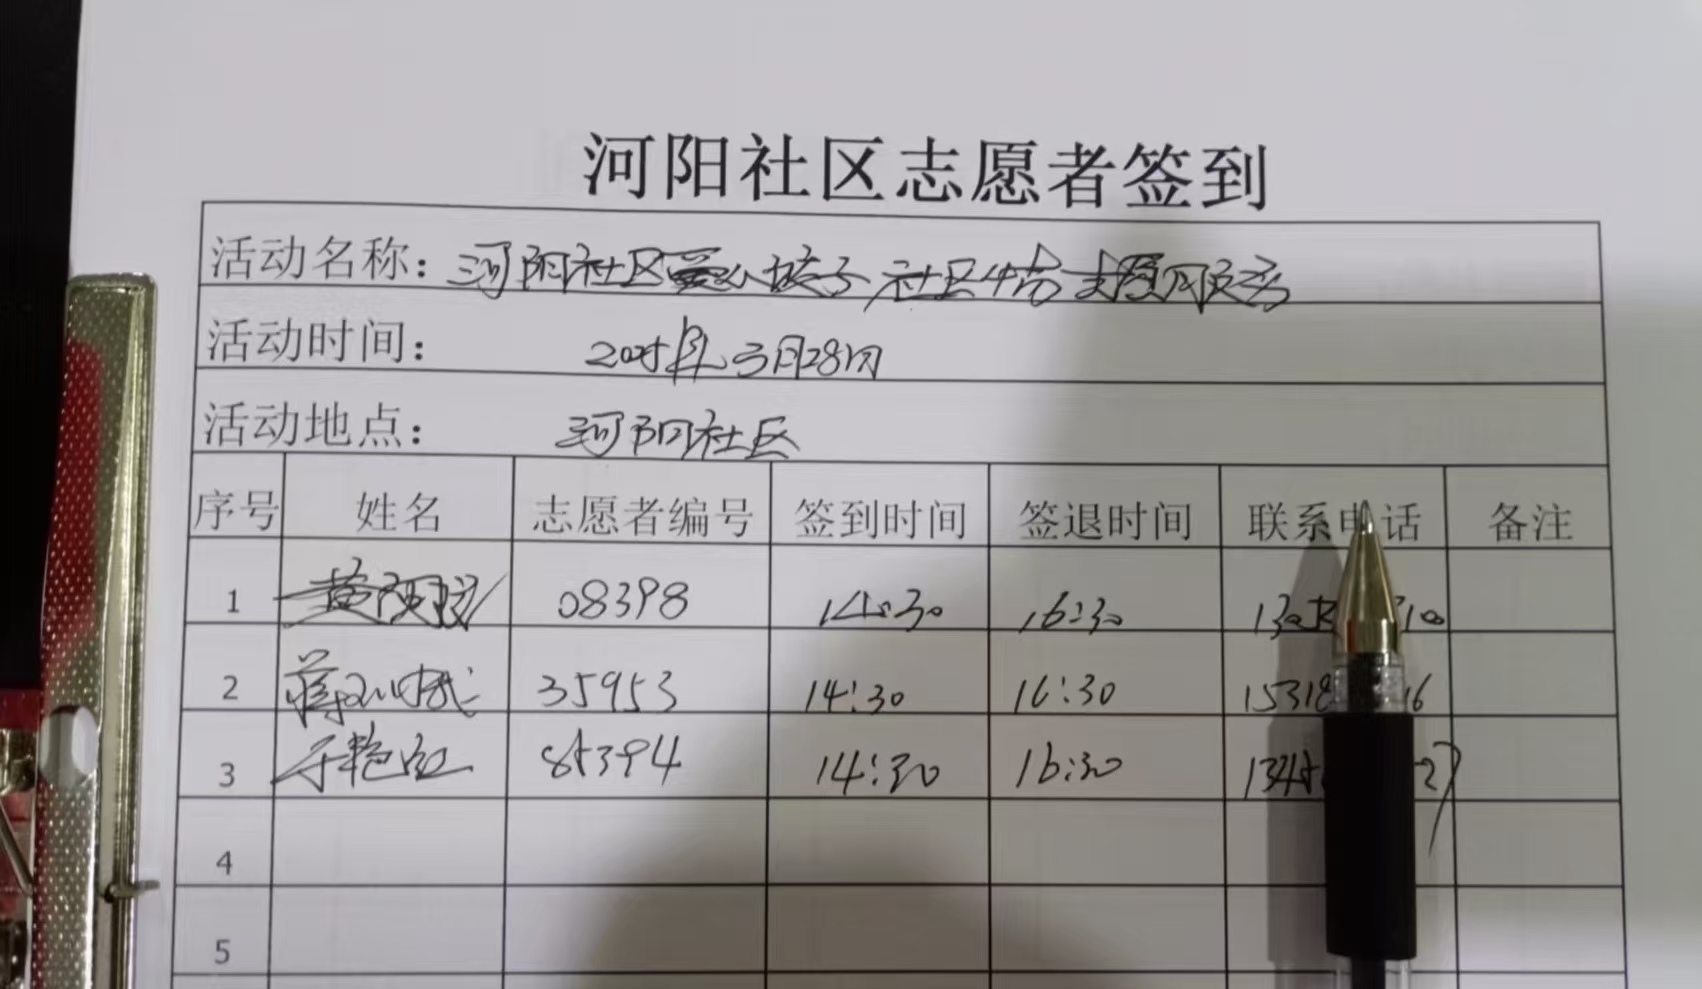 河阳社区志愿者签到
活动名称：河阳社区 孩子 社区 志愿服务
活动时间： 2025年3月28日
活动地点： 河阳社区
序号 姓名 志愿者编号 签到时间 签退时间 联系电话 备注
1 黄 08398 14:30 16:30
2 蒋 35953 14:30 16:30 15318 16
3 于艳红 85394 14:30 16:30 1345 27
4
5